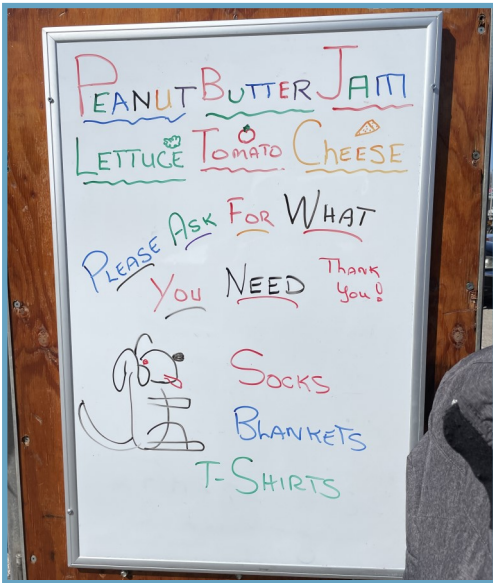 PEANUT BUTTER JAM
LETTUCE TOMATO CHEESE
PLEASE ASK FOR WHAT
YOU NEED THANK
YOU!
SOCKS
BLANKETS
T-SHIRTS